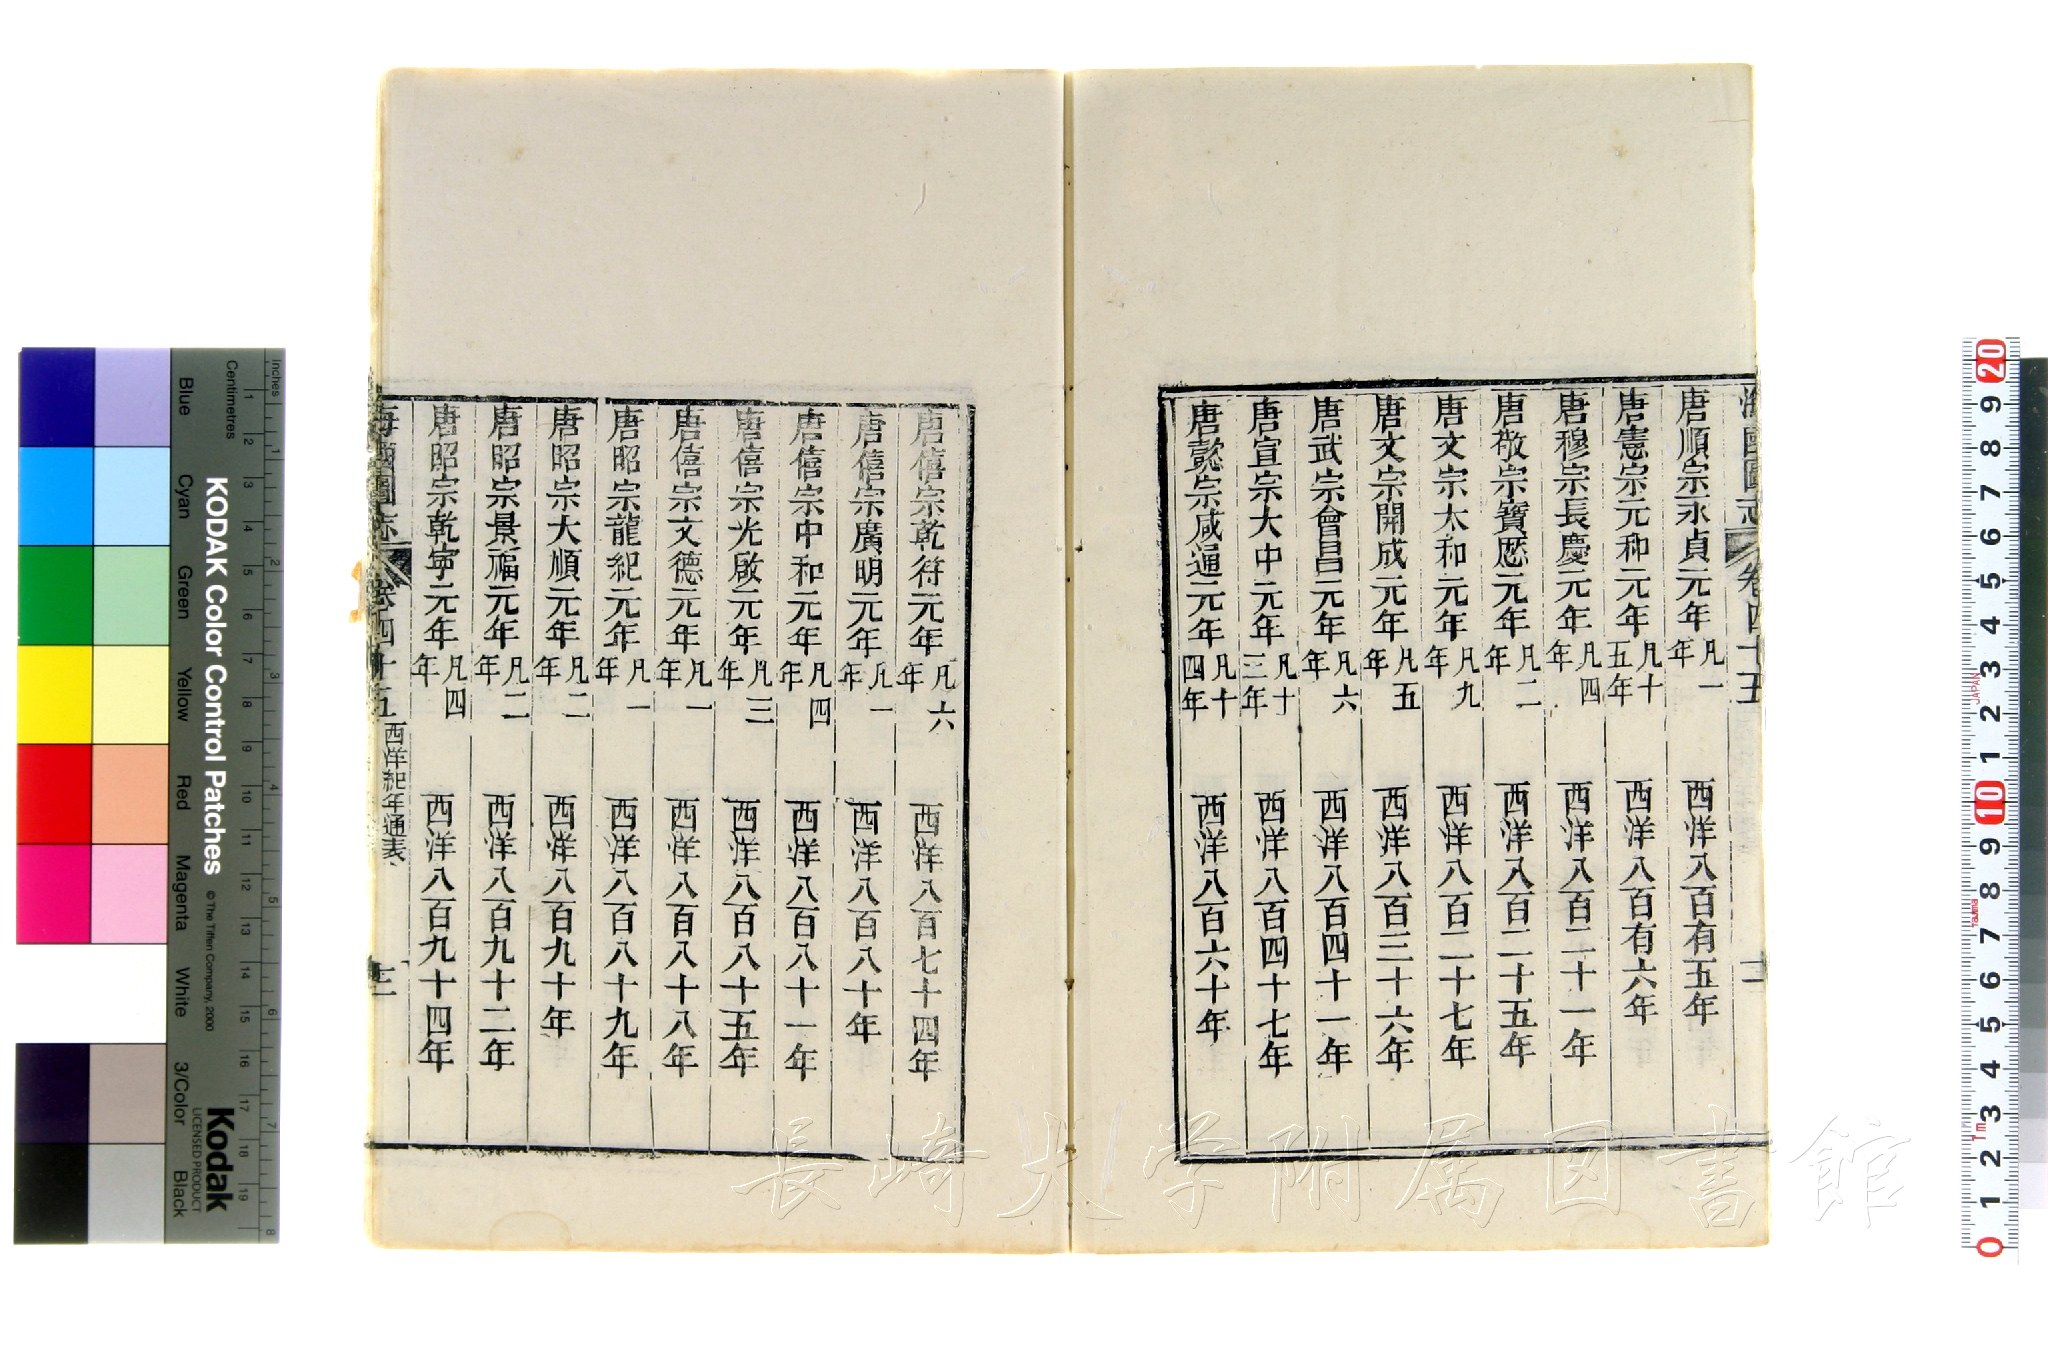 海國圖志
卷四十五
十一
唐順宗永貞元年 凡一年 西洋八百有五年
唐憲宗元和元年 凡十五年 西洋八百有六年
唐穆宗長慶元年 凡四年 西洋八百二十一年
唐敬宗寶歷元年 凡二年 西洋八百二十五年
唐文宗太和元年 凡九年 西洋八百二十七年
唐文宗開成元年 凡五年 西洋八百三十六年
唐武宗會昌元年 凡六年 西洋八百四十一年
唐宣宗大中元年 凡十三年 西洋八百四十七年
唐懿宗咸通元年 凡十四年 西洋八百六十年
唐僖宗乾符元年 凡六年 西洋八百七十四年
唐僖宗廣明元年 凡一年 西洋八百八十年
唐僖宗中和元年 凡四年 西洋八百八十一年
唐僖宗光啟元年 凡三年 西洋八百八十五年
唐僖宗文德元年 凡一年 西洋八百八十八年
唐昭宗龍紀元年 凡一年 西洋八百八十九年
唐昭宗大順元年 凡二年 西洋八百九十年
唐昭宗景福元年 凡二年 西洋八百九十二年
唐昭宗乾寧元年 凡四年 西洋八百九十四年
海國圖志
卷四十五
西洋紀年通表
長崎大学附属図書館
KODAK Color Control Patches
© The Tiffen Company, 2000
Kodak
LICENSED PRODUCT
Inches
Centimetres
Blue
Cyan
Green
Yellow
Red
Magenta
White
3/Color
Black
1 2 3 4 5 6 7 8 9 10 11 12 13 14 15 16 17 18 19
1 2 3 4 5 6 7 8
20 9 8 7 6 5 4 3 2 1 10 9 8 7 6 5 4 3 2 1 0
JAPAN